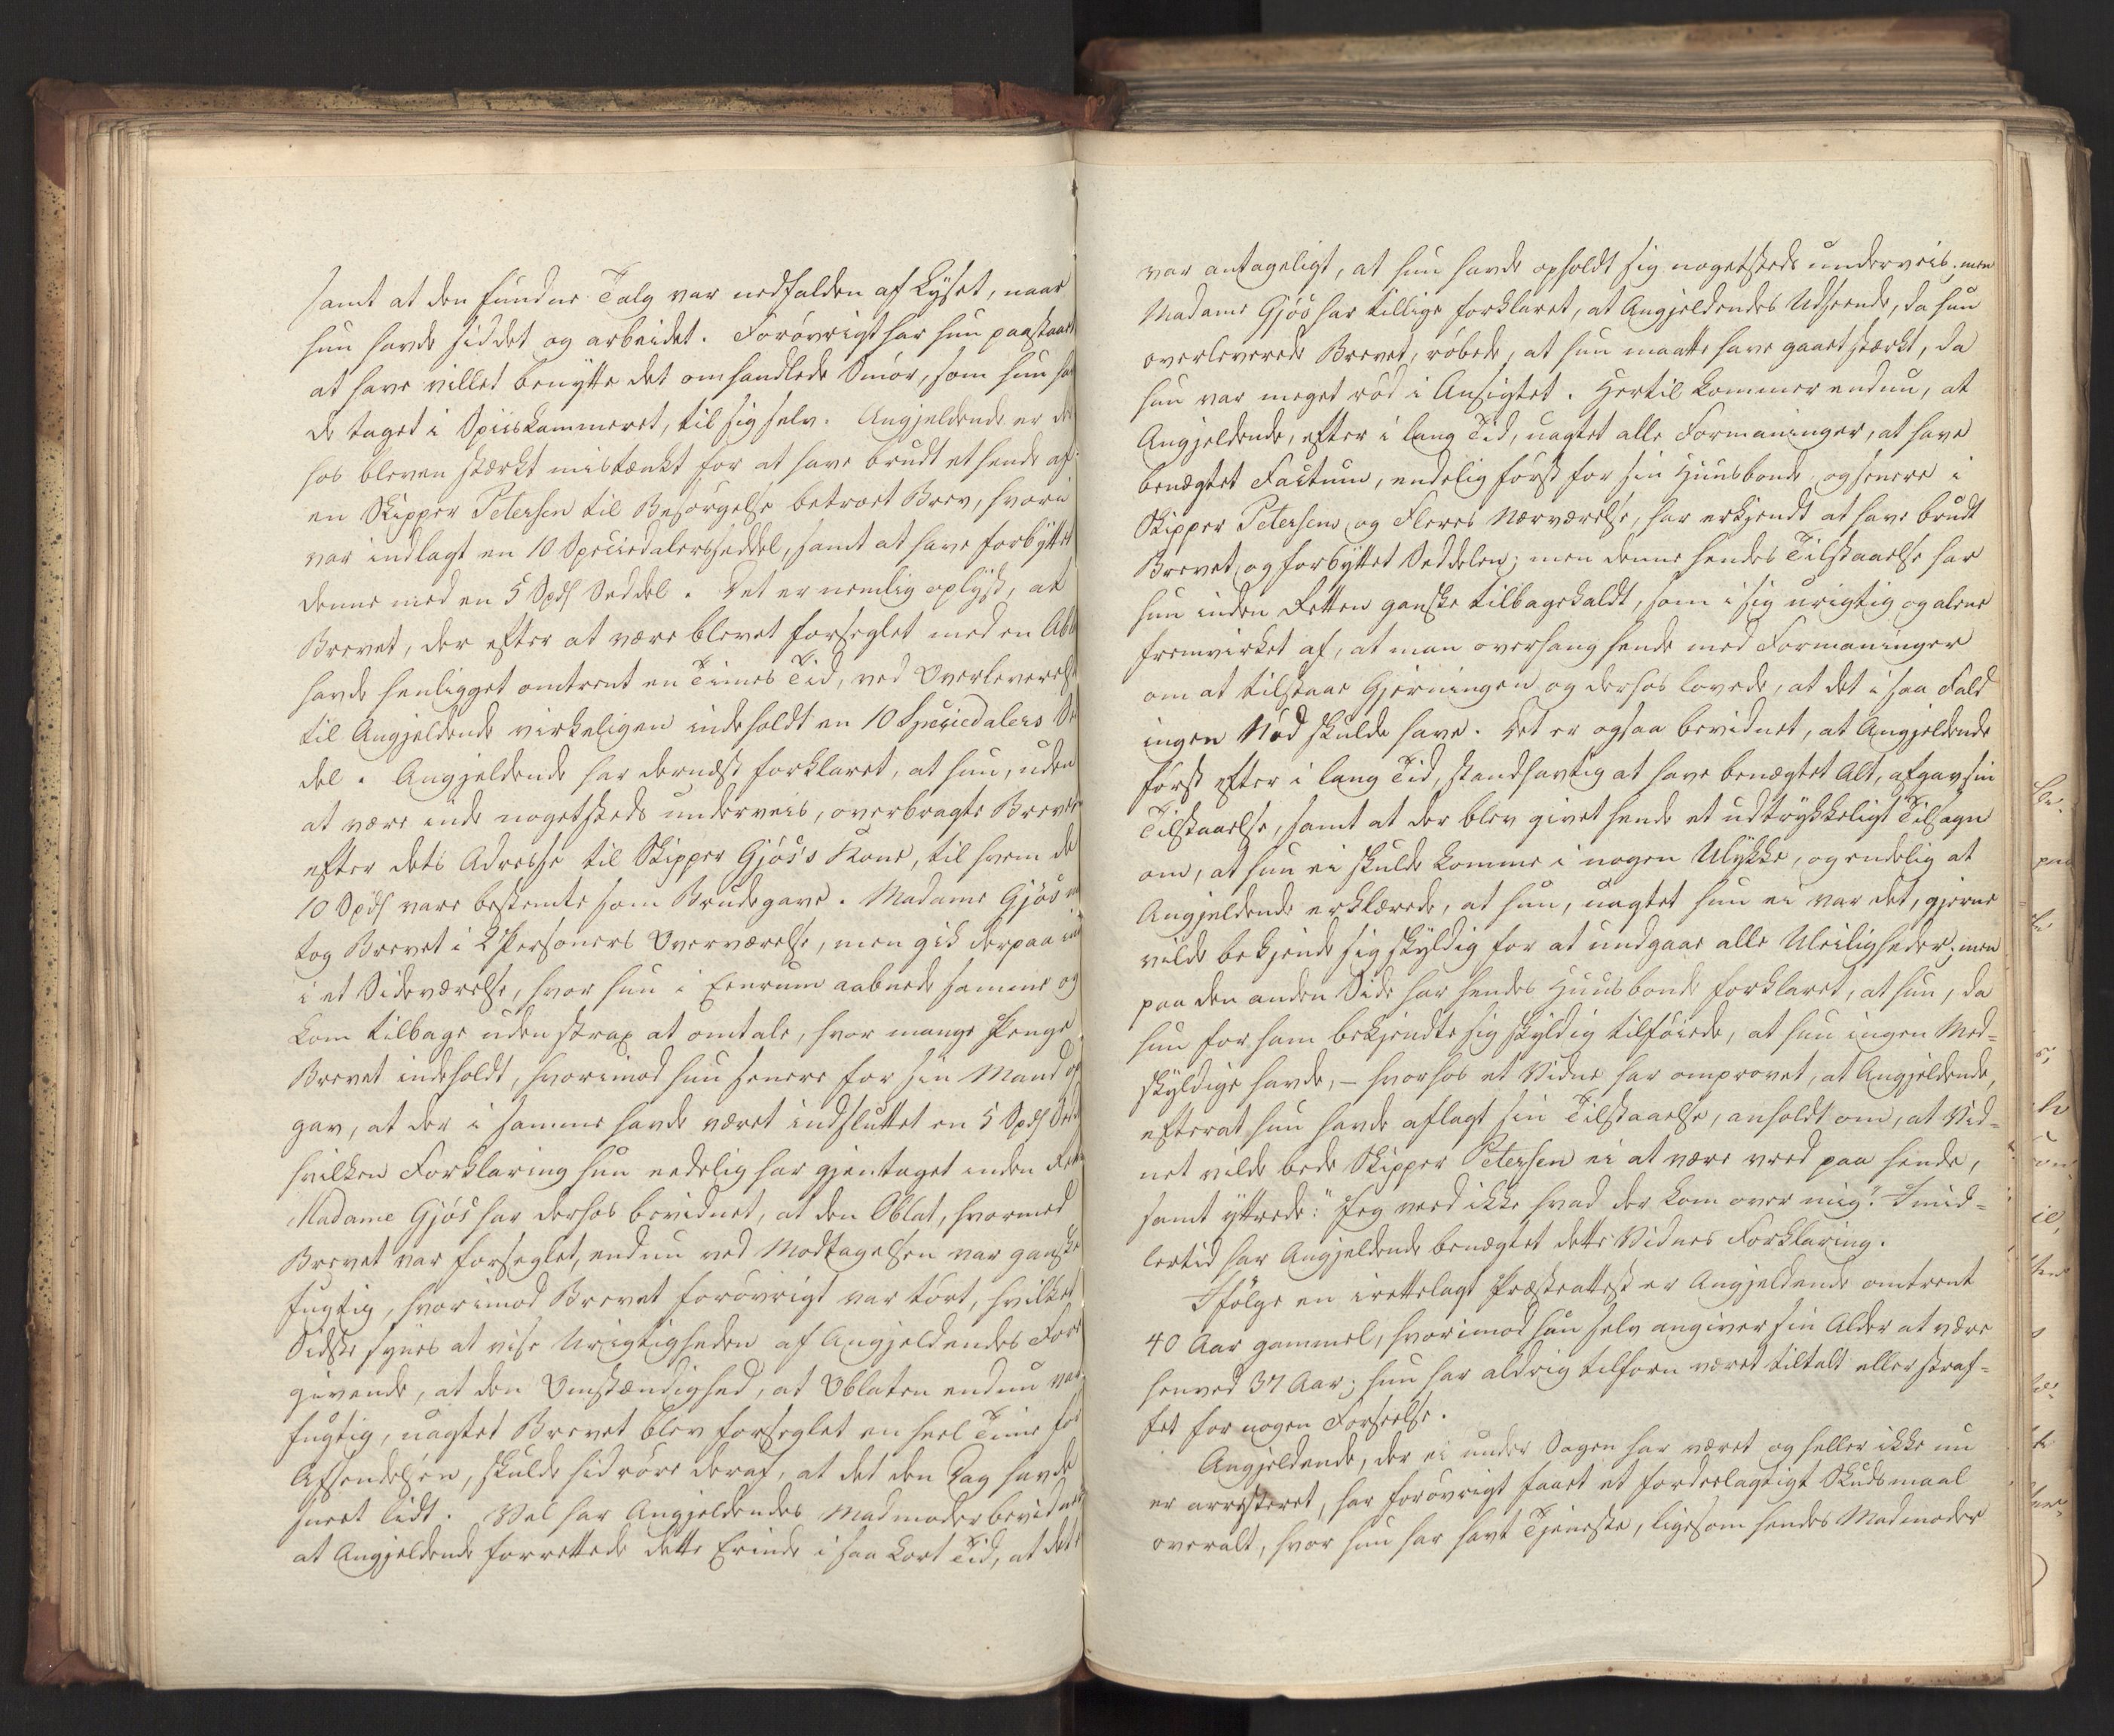 samt at den fundne Talg var nedfalden af Lyset, naar
hun havde siddet og arbeidet. Forøvrigt har hun paastaaet
at have villet benytte det omhandlede Smør, som hun hav
de taget i Spiiskammeret, til sig selv. Angjeldende er der
hos bleven stærkt mistænkt for at have brudt et hende af
en Skipper Petersen til Besørgelse betroet Brev, hvori
var indlagt en 10 Speciedalersseddel, samt at have forbyttet
denne med en 5 Spds Seddel. Det er nemlig oplyst, at
Brevet, der efter at være blevet forseglet med en Oblat
havde henligget omtrent en Times Tid, ved Overleverelsen
til Angjeldende virkeligen indeholdt en 10 Speciedalers Sed
del. Angjeldende har dernæst forklaret, at hun, uden
at være inde nogetsteds underveis, overbragte Brevet
efter dets Adresse til Skipper Gjøs's Kone, til hvem de
10 Spds vare bestemte som Brudegave. Madame Gjøs mod
tog Brevet i 2 Personers Overværelse, men gik derpaa ind
i et Sideværelse, hvor hun i Eenrum aabnede samme og
kom tilbage uden strax at omtale, hvor mange Penge
Brevet indeholdt, hvorimod hun senere for sin Mand op
gav, at der i samme havde været indsluttet en 5 Spds Seddel
hvilken Forklaring hun eedelig har gjentaget inden Retten
Madame Gjøs har derhos bevidnet, at den Oblat, hvormed
Brevet var forseglet, endnu ved Modtagelsen var ganske
fugtig, hvorimod Brevet forøvrigt var tørt, hvilket
Sidste synes at vise Urigtigheden af Angjeldendes Fore
givende, at den Omstændighed, at Oblaten endnu var
fugtig, uagtet Brevet blev forseglet en heel Time før
Afsendelsen, skulde hidrøre deraf, at det den Dag havde
sneet lidt. Vel har Angjeldendes Madmoder bevidnet
at Angjeldende forrettede dette Erinde i saa kort Tid, at det ei
var antageligt, at hun havde opholdt sig nogetsteds underveis; men
Madame Gjøs har tillige forklaret, at Angjeldendes Udseende, da hun
overleverede Brevet, røbede, at hun maatte have gaaet stærkt, da
hun var meget rød i Ansigtet. Hertil kommer endnu, at
Angjeldende, efter i lang Tid, uagtet alle Formaninger, at have
benægtet Factum, endelig først for sin Huusbonde og senere i
Skipper Petersens og Fleres Nærværelse, har erkjendt at have brudt
Brevet og forbyttet Seddelen; men denne hendes Tilstaaelse har
hun inden Retten ganske tilbagekaldt, som i sig urigtig og alene
fremvirket af, at man overhang hende med Formaninger
om at tilstaae Gjerningen og derhos lovede, at det i saa Fald
ingen Nød skulde have. Det er ogsaa bevidnet, at Angjeldende
først efter i lang Tid, standhavtig at have benægtet Alt, afgav sin
Tilstaaelse, samt at der blev givet hende et udtrykkeligt Tilsagn
om, at hun ei skulde komme i nogen Ulykke, og endelig at
Angjeldende erklærede, at hun, uagtet hun ei var det, gjerne
vilde bekjende sig skyldig for at undgaae alle Uleiligheder; men
paa den anden Side har hendes Huusbonde forklaret, at hun, da
hun for ham bekjendte sig skyldig tilføiede, at hun ingen Med-
skyldige havde, – hvorhos et Vidne har omprovet, at Angjeldende,
efterat hun havde aflagt sin Tilstaaelse, anholdt om, at Vid-
net vilde bede Skipper Petersen ei at være vred paa hende,
samt yttrede: "Jeg veed ikke hvad der kom over mig". Imid-
lertid har Angjeldende benægtet dette Vidnes Forklaring.
Ifølge en irettelagt Præsteattest er Angjeldende omtrent
40 Aar gammel, hvorimod hun selv angiver sin Alder at være
henved 37 Aar; hun har aldrig tilforn været tiltalt eller straf-
fet for nogen Forseelse.
Angjeldende, der ei under Sagen har været og heller ikke nu
er arresteret, har forøvrigt faaet et fordeelagtigt Skudsmaal
overalt, hvor hun har havt Tjeneste, ligesom hendes Madmoder